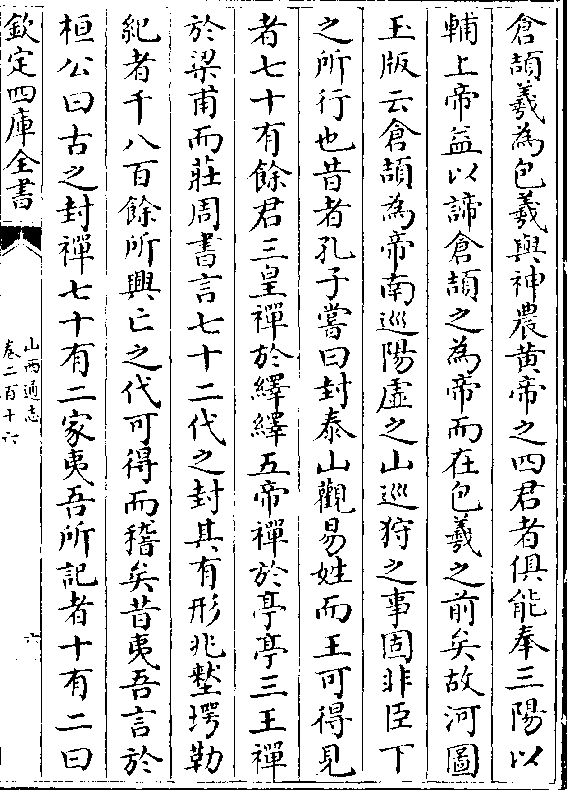 倉頡羲為包羲與神農黄帝之四君者俱能奉三陽以
輔上帝益以諦倉頡之為帝而在包羲之前矣故河圖
玉版云倉頡為帝南巡陽虛之山巡狩之事固非臣下
之所行也昔者孔子嘗曰封泰山觀易姓而王可得見
者七十有餘君三皇禪於繹繹五帝禪於亭亭三王禪
於梁甫而莊周書言七十二代之封其有形兆墊堮勒
紀者千八百餘所興亡之代可得而稽矣昔夷吾言於
桓公曰古之封禪七十有二家夷吾所記者十有二曰
欽定四庫全書
山西通志
卷二百十六
六